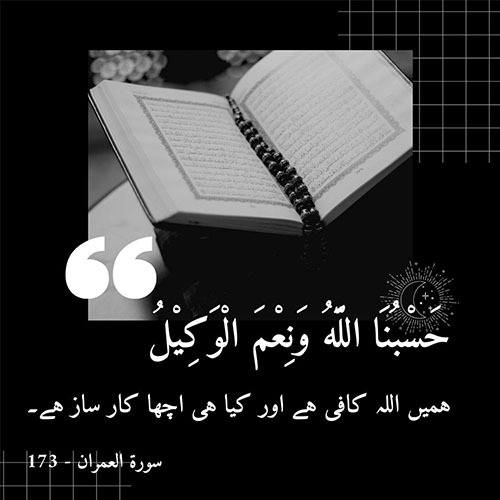 حَسْبُنَا اللّٰهُ وَنِعْمَ الْوَكِيْلُ
ہمیں اللہ کافی ہے اور کیا ہی اچھا کار ساز ہے۔
سورۃ العمران - 173